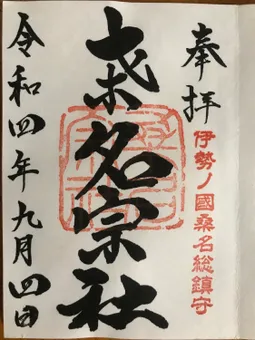 奉拝
伊勢ノ國桑名総鎮守
桑名宗社
令和四年九月四日